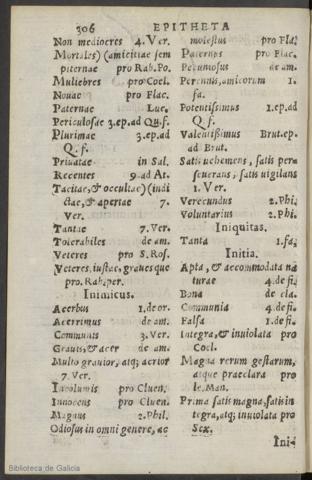 306 EPITHETA
Non mediocres 4. Ver.
Mortales) (amicitiae sem
piternae pro Rab. Po.
Muliebres pro Coel.
Nouae pro Flac.
Paternae Luc.
Periculosae 3. ep. ad Qu. f.
Plurimae 3. ep. ad
Q. f.
Priuatae in Sal.
Recentes 9. ad At.
Tacitae, & occultae) (indi
ctae, & apertae 7.
Ver.
Tantae 7. Ver.
Tolerabiles de am.
Veteres pro S. Ros.
Veteres, iustae, graues que
pro. Rab. per.
Inimicus.
Acerbus 1. de or.
Acerrimus de am.
Communis 3. Ver.
Grauis, & acer de am.
Multo grauior, atq; acrior
7. Ver.
Incolumis pro Cluen.
Innocens pro Cluen.
Magnus 2. Phil.
Odiosus in omni genere, ac
molestus pro Fla.
Paternus pro Flac.
Perniciosus de am.
Perennis, amicorum 1.
fa.
Potentissimus 1. ep. ad
Q. f.
Valentissimus Brut. ep.
ad Brut.
Satis uehemens, satis per
seuerans, satis uigilans
1. Ver.
Verecundus 2. Phi.
Voluntarius 2. Phi.
Iniquitas.
Tanta 1. fa.
Initia.
Apta, & accommodata na
turae 4. de fi.
Bona de cla.
Communia 4. de fi.
Falsa 1. de fi.
Integra, & inuiolata pro
Coel.
Magna rerum gestarum,
atque praeclara pro
le. Man.
Prima satis magna, satis in
tegra, atq; inuiolata pro
Sex.
Ini-
Biblioteca de Galicia